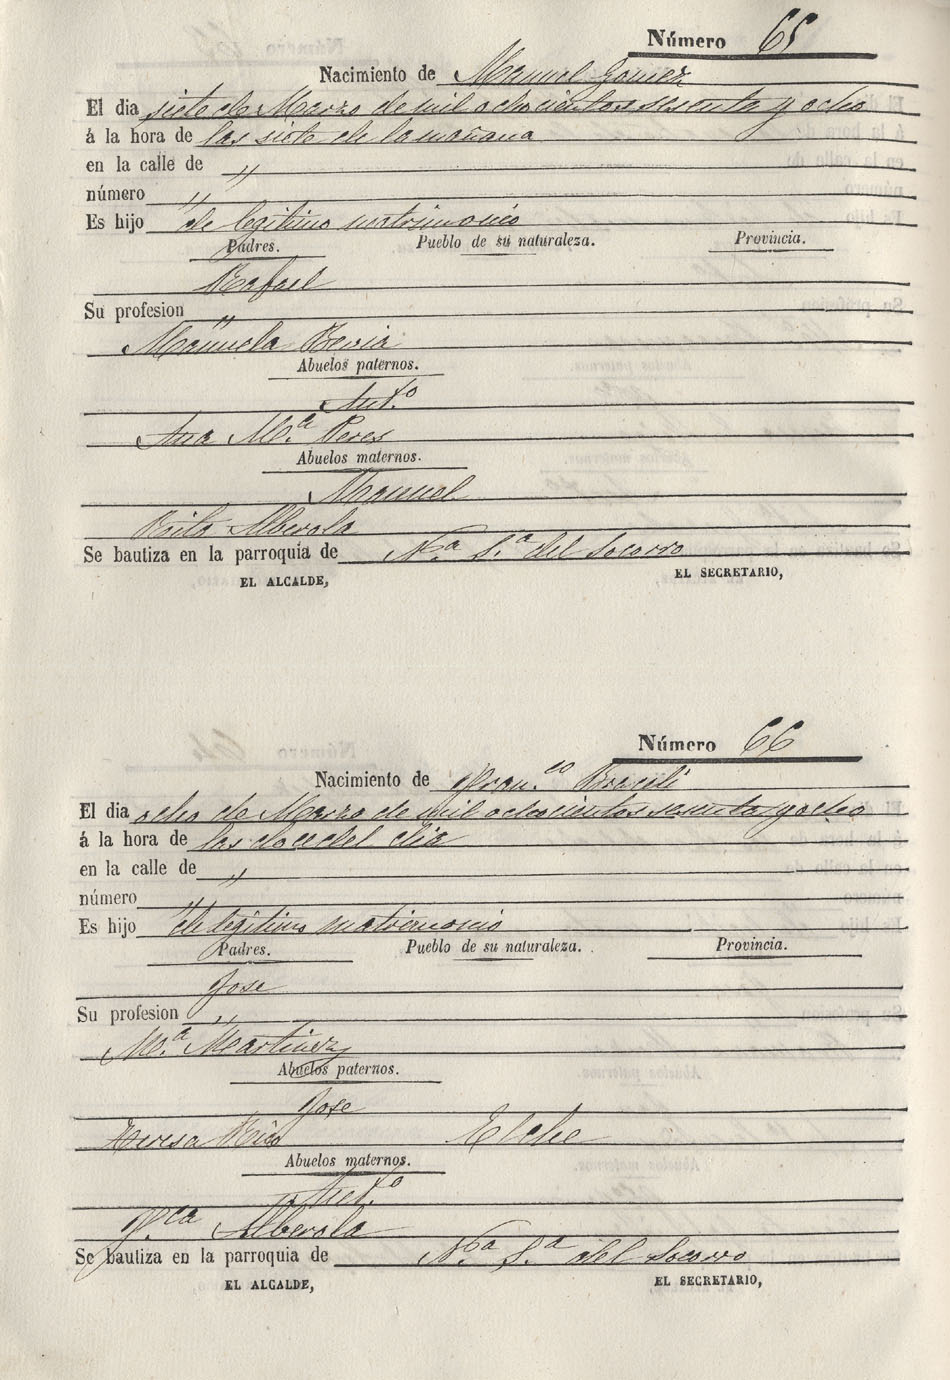 Número 65
Nacimiento de Manuel Gomez
El dia siete de Marzo de mil ochocientos sesenta y ocho
á la hora de las siete de la mañana
en la calle de "
número "
Es hijo de legitimo matrimonio
Padres. Pueblo de su naturaleza. Provincia.
Rafael
Su profesion "
Manuela Bevia
Abuelos paternos.
Ant.o
Ana M.a Peres
Abuelos maternos.
Manuel
Alberola
Se bautiza en la parroquia de N.a S.a del Socorro
EL ALCALDE, EL SECRETARIO,
Número 66
Nacimiento de Fran.co
El dia ocho de Marzo de mil ochocientos sesenta y ocho
á la hora de las doce del dia
en la calle de "
número "
Es hijo de legitimo matrimonio
Padres. Pueblo de su naturaleza. Provincia.
Jose
Su profesion "
M.a Martinez
Abuelos paternos.
Jose
Teresa Rico Elche
Abuelos maternos.
Ant.o
Alberola
Se bautiza en la parroquia de N.a S.a del Socorro
EL ALCALDE, EL SECRETARIO,